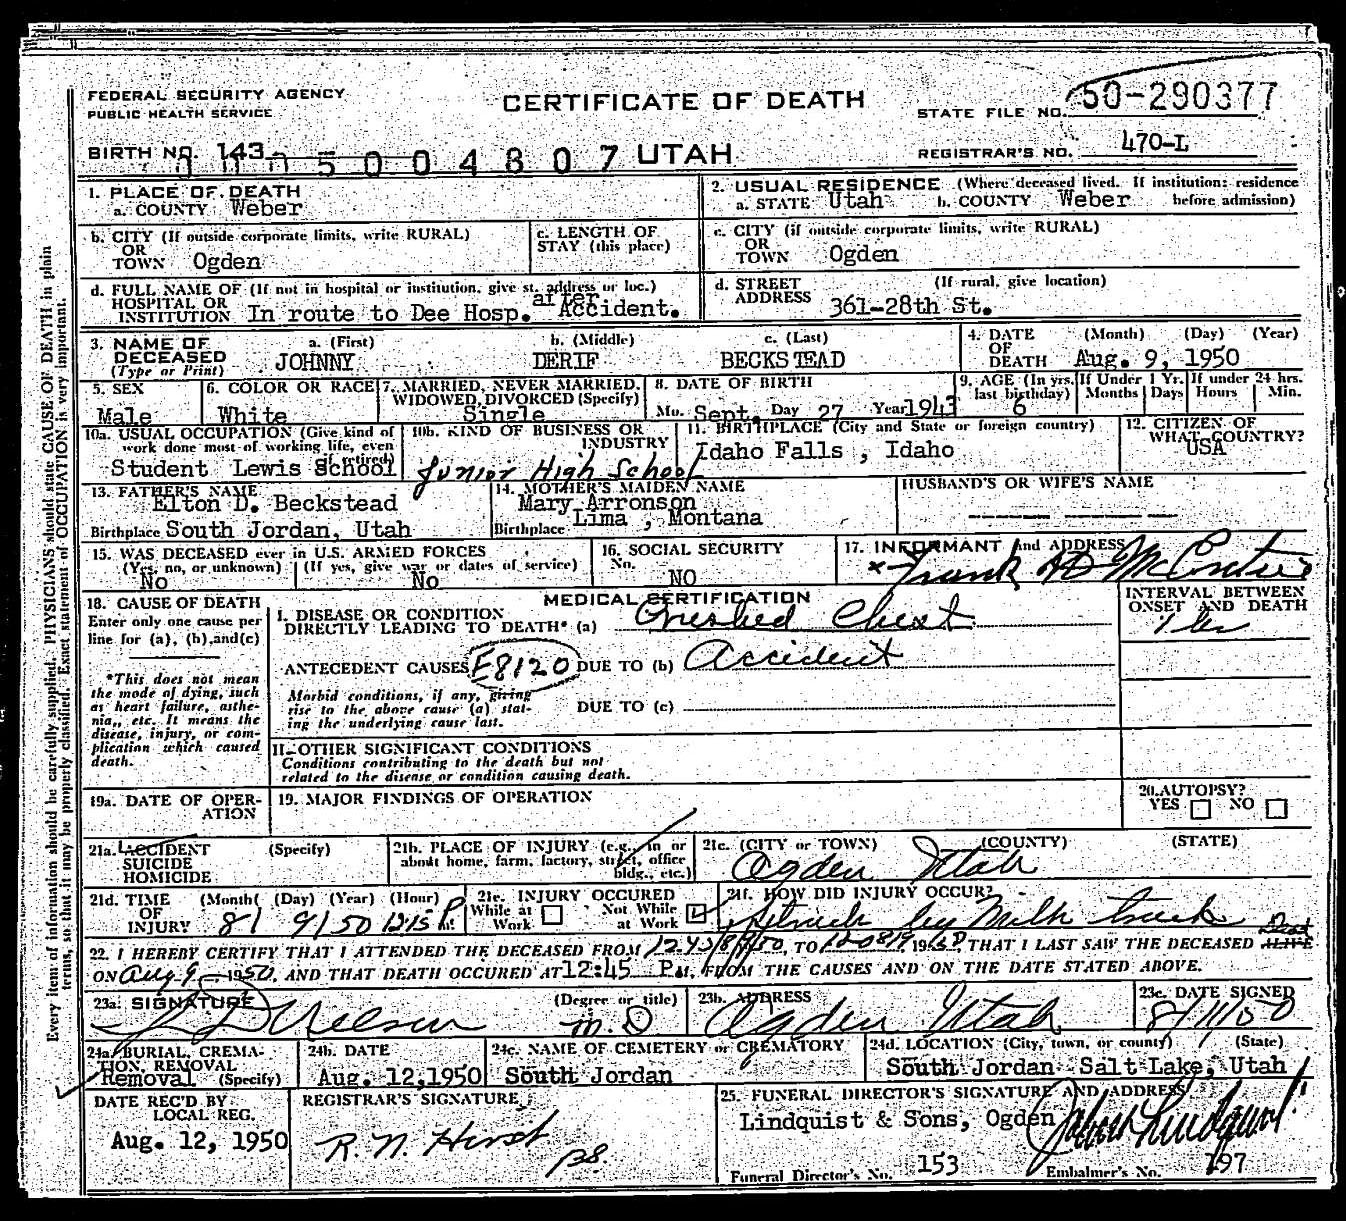 FEDERAL SECURITY AGENCY
PUBLIC HEALTH SERVICE
CERTIFICATE OF DEATH
STATE FILE NO. 50-290377
BIRTH NO. 143
5004807 UTAH
REGISTRAR'S NO. 470-L
1. PLACE OF DEATH
a. COUNTY Weber
2. USUAL RESIDENCE (Where deceased lived. If institution: residence before admission)
a. STATE Utah b. COUNTY Weber
b. CITY (If outside corporate limits, write RURAL)
OR
TOWN Ogden
c. LENGTH OF
STAY (this place)
c. CITY (if outside corporate limits, write RURAL)
OR
TOWN Ogden
d. FULL NAME OF (If not in hospital or institution, give st. address or loc.)
HOSPITAL OR
INSTITUTION In route to Dee Hosp. after Accident.
d. STREET
ADDRESS
(If rural, give location)
361-28th St.
3. NAME OF
DECEASED
(Type or Print)
a. (First)
JOHNNY
b. (Middle)
DERIF
c. (Last)
BECKSTEAD
4. DATE
OF
DEATH
(Month) (Day) (Year)
Aug. 9, 1950
5. SEX
Male
6. COLOR OR RACE
White
7. MARRIED, NEVER MARRIED,
WIDOWED, DIVORCED (Specify)
Single
8. DATE OF BIRTH
Mo. Sept. Day 27 Year 1943
9. AGE (In yrs. last birthday)
6
If Under 1 Yr.
Months Days
If under 24 hrs.
Hours Min.
10a. USUAL OCCUPATION (Give kind of
work done most of working life, even
if retired)
Student Lewis School
10b. KIND OF BUSINESS OR
INDUSTRY
Junior High School
11. BIRTHPLACE (City and State or foreign country)
Idaho Falls , Idaho
12. CITIZEN OF
WHAT COUNTRY?
USA
13. FATHER'S NAME
Elton D. Beckstead
Birthplace South Jordan, Utah
14. MOTHER'S MAIDEN NAME
Mary Arronson
Birthplace Lima , Montana
HUSBAND'S OR WIFE'S NAME
15. WAS DECEASED ever in U.S. ARMED FORCES
(Yes, no, or unknown) (If yes, give war or dates of service)
No No
16. SOCIAL SECURITY
No.
NO
17. INFORMANT and ADDRESS
x Frank D McEntire
18. CAUSE OF DEATH
Enter only one cause per
line for (a), (b), and (c)
*This does not mean
the mode of dying, such
as heart failure, asthe-
nia,, etc. It means the
disease, injury, or com-
plication which caused
death.
MEDICAL CERTIFICATION
I. DISEASE OR CONDITION
DIRECTLY LEADING TO DEATH* (a) Crushed Chest
ANTECEDENT CAUSES E8120 DUE TO (b) Accident
Morbid conditions, if any, giving
rise to the above cause (a) stat-
ing the underlying cause last.
DUE TO (c)
II-OTHER SIGNIFICANT CONDITIONS
Conditions contributing to the death but not
related to the disease or condition causing death.
INTERVAL BETWEEN
ONSET AND DEATH
19a. DATE OF OPER-
ATION
19. MAJOR FINDINGS OF OPERATION
20. AUTOPSY?
YES NO
21a. ACCIDENT
SUICIDE
HOMICIDE
(Specify)
21b. PLACE OF INJURY (e.g., in or
about home, farm, factory, street, office
bldg., etc.)
21c. (CITY or TOWN) (COUNTY) (STATE)
Ogden Utah
21d. TIME
OF
INJURY
(Month) (Day) (Year) (Hour)
8/ 9/50 1215 P m.
21e. INJURY OCCURED
While at
Work
Not While
at Work
21f. HOW DID INJURY OCCUR?
Struck by Milk truck
22. I HEREBY CERTIFY THAT I ATTENDED THE DECEASED FROM TO 19 THAT I LAST SAW THE DECEASED ALIVE Dead
ON Aug 9 1950. AND THAT DEATH OCCURED AT 12:45 P.M, FROM THE CAUSES AND ON THE DATE STATED ABOVE.
23a. SIGNATURE
Nelson
(Degree or title)
M.D
23b. ADDRESS
Ogden Utah
23c. DATE SIGNED
8/11/50
24a. BURIAL, CREMA-
TION, REMOVAL
Removal (Specify)
24b. DATE
Aug. 12,1950
24c. NAME OF CEMETERY or CREMATORY
South Jordan
24d. LOCATION (City, town, or county) (State)
South Jordan Salt Lake, Utah
DATE REC'D BY
LOCAL REG.
Aug. 12, 1950
REGISTRAR'S SIGNATURE
R. N. Hirst
25. FUNERAL DIRECTOR'S SIGNATURE AND ADDRESS
Lindquist & Sons, Ogden
Funeral Director's No. 153
Embalmer's No. 197
Every item of information should be carefully supplied. PHYSICIANS should state CAUSE OF DEATH in plain
terms, so that it may be properly classified. Exact statement of OCCUPATION is very important.